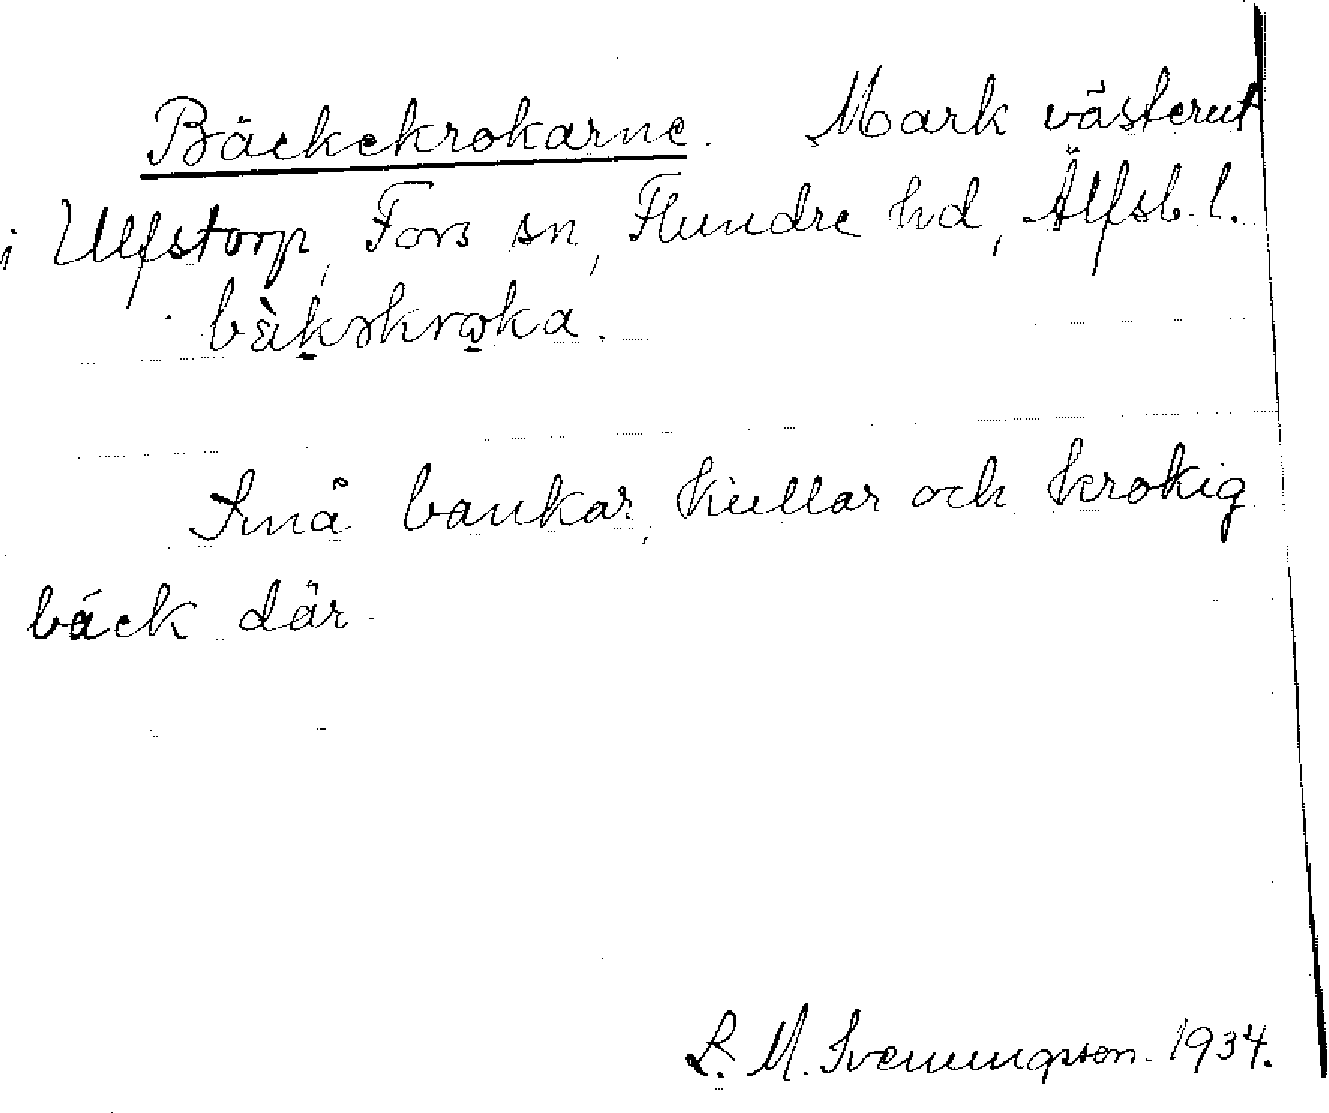 Bäckekrokarne. Mark västerut
i Ulfstorp, Fors sn, Flundre hd, Älfsb. l.
bàkəkroka.
Små bankar, kullar och krokig
bäck där.
L. M. Svenungsson. 1934.